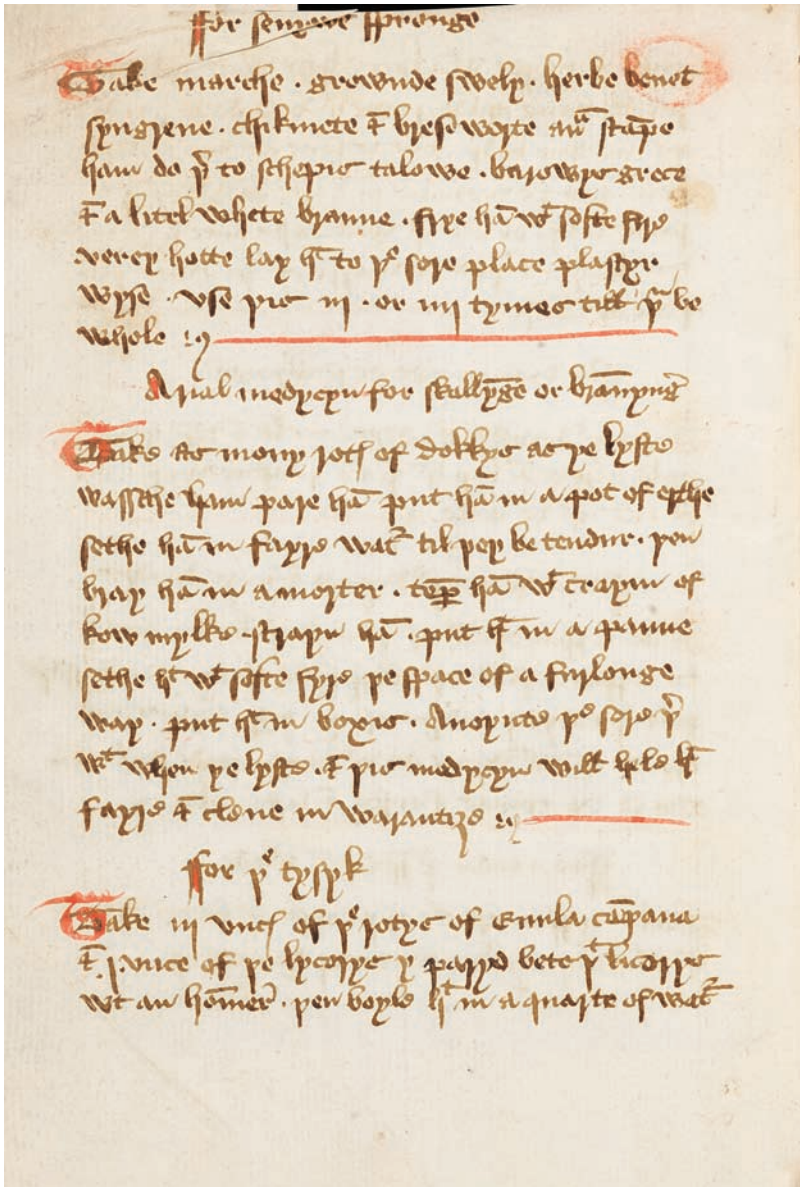 ffor senowe spronge
Take marche . grownde swely . herbe benet
syngrene . chikmete & bresewort and stāpe
ham do þr to schepis talowe . barowys grece
& a litel whete branne . frye hā wt softe fyre
verey hotte lay ht to þe sore place plastyr
wyse . vse þis iij . or iiij tymes till þu be
whole
A rial medycyn for skallyge or brānyng
Take as mony rotes of dokkys as ye lyste
wassche ham pare hā put hā in a pot of erthe
sethe hā in fayre watr til þey be tendur . þen
bray hā in a morter . tēp hā wt craym of
kow mylke . strayn hā . put ht in a panne
sethe ht wt softe fyre þe space of a furlonge
way . put ht in boxis . Anoyntе þe sore þr
wt when ye lyste . & þis medycyn will hele ht
fayre & clene in warantize
ffor þe tysyk
Take iij vnces of þe rotys of Enula cāpana
& j vnce of þe lycorys y paryd bete þt licorys
wt an hōmer . þen boyle ht in a quarte of watr